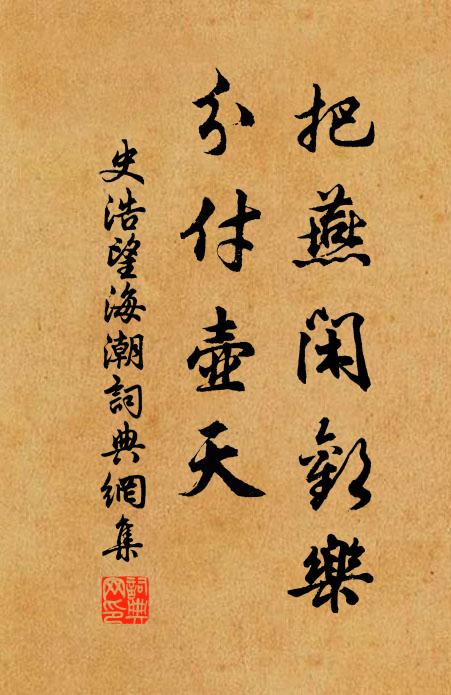 把燕閑歡樂
分付壺天
史浩望海潮詞典網集
詞典网印